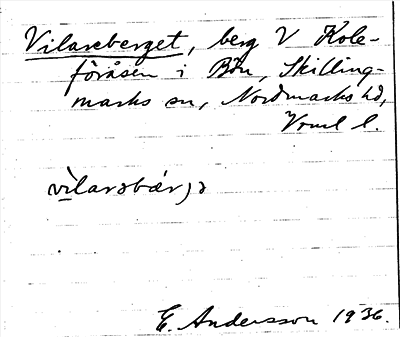 Vilareberget, berg V Kole-
föråsen i Bön, Skilling-
marks sn, Nordmarks hd,
Vrml l.
vìlarəbær̡jə
E. Andersson 1936.